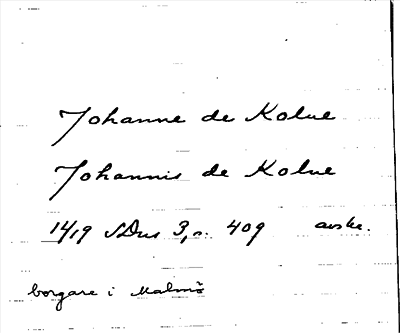 Johanne de Kolne
Johannis de Kolne
1419 SDns 3, s. 409 avskr.
borgare i Malmö